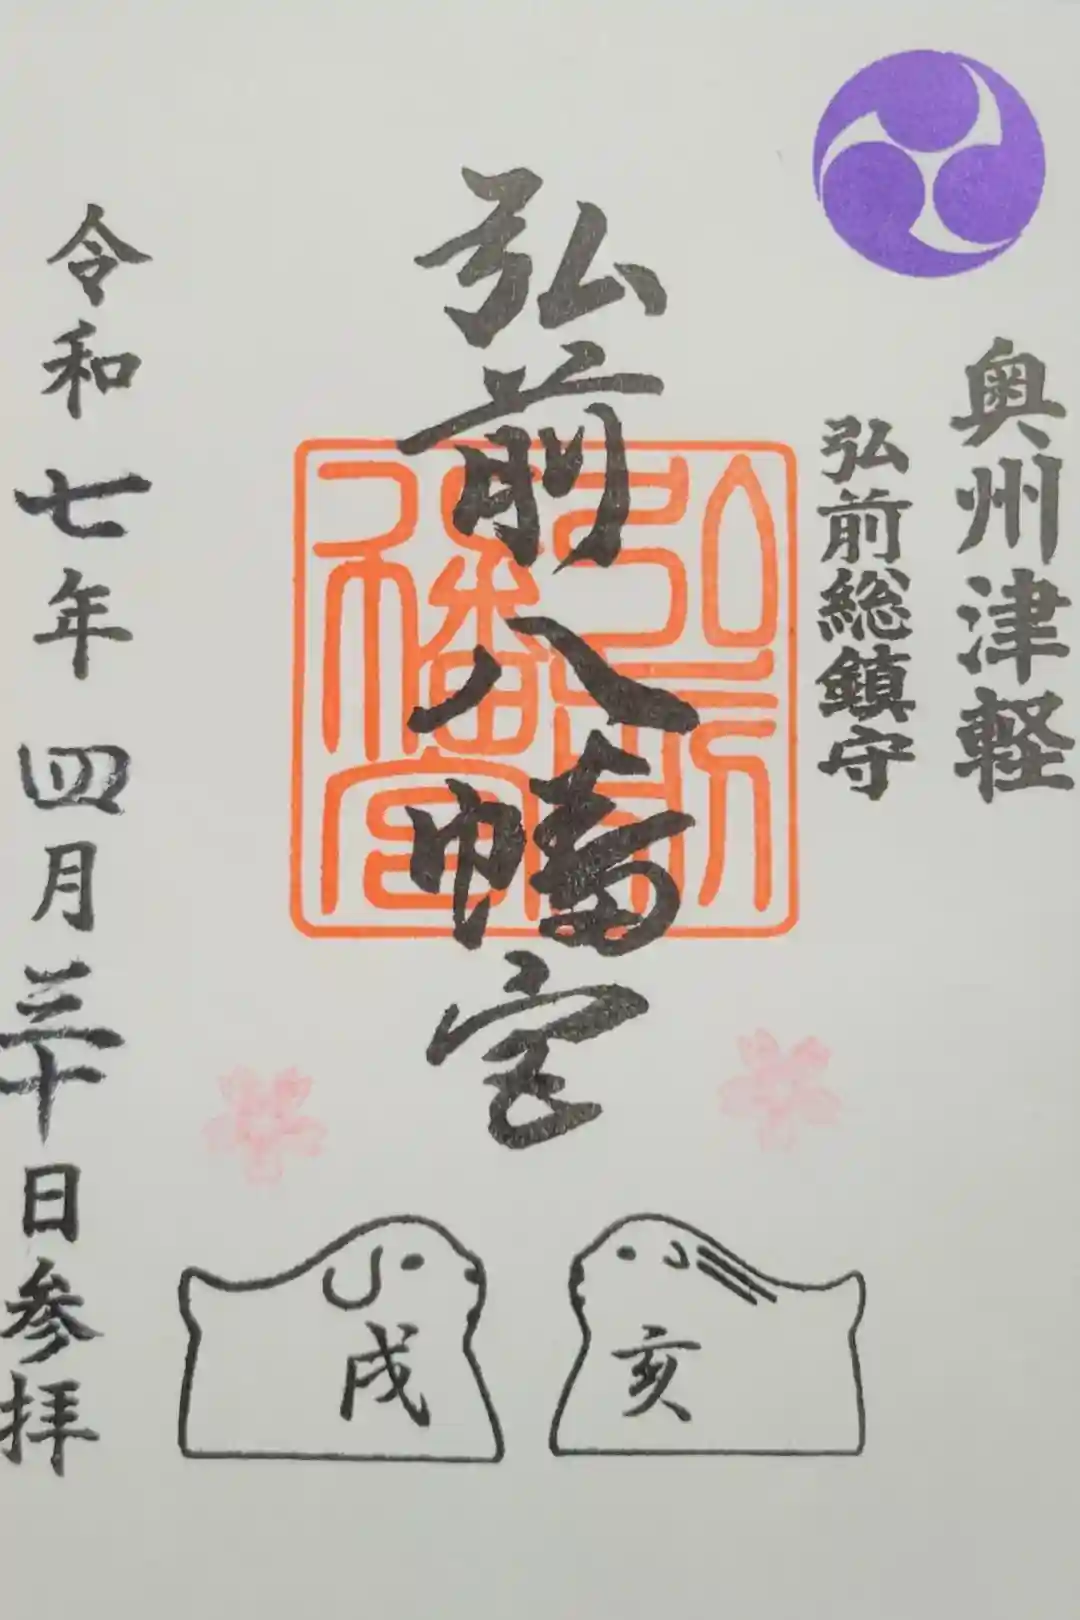 奥州津軽
弘前総鎮守
弘前八幡宮
弘前八幡宮
令和七年四月三十日参拝
亥
戌